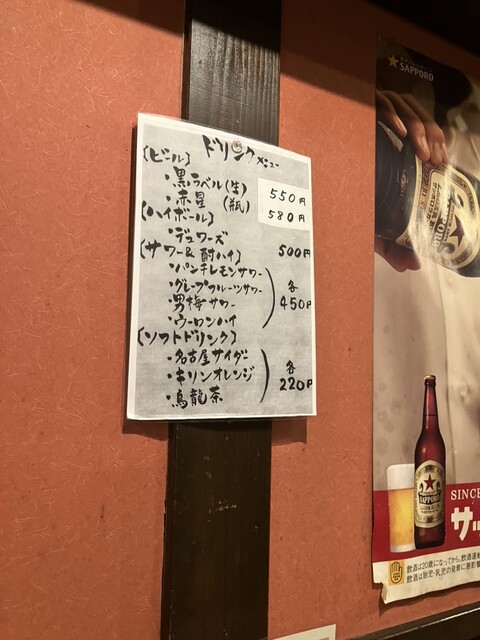 ドリンクメニュー
{ビール}
・黒ラベル(生) 550円
・赤星 (瓶) 580円
{ハイボール}
・デュワーズ 500円
{サワー&酎ハイ}
・パンチレモンサワー
・グレープフルーツサワー 各
・男梅サワー 450円
・ウーロンハイ
{ソフトドリンク}
・名古屋サイダー 各
・キリンオレンジ 220円
・烏龍茶
SAPPORO
SAPPORO
SINCE
サッ
飲酒は20歳になってから。飲酒運転
飲酒は胎児・乳児の発育に悪影響